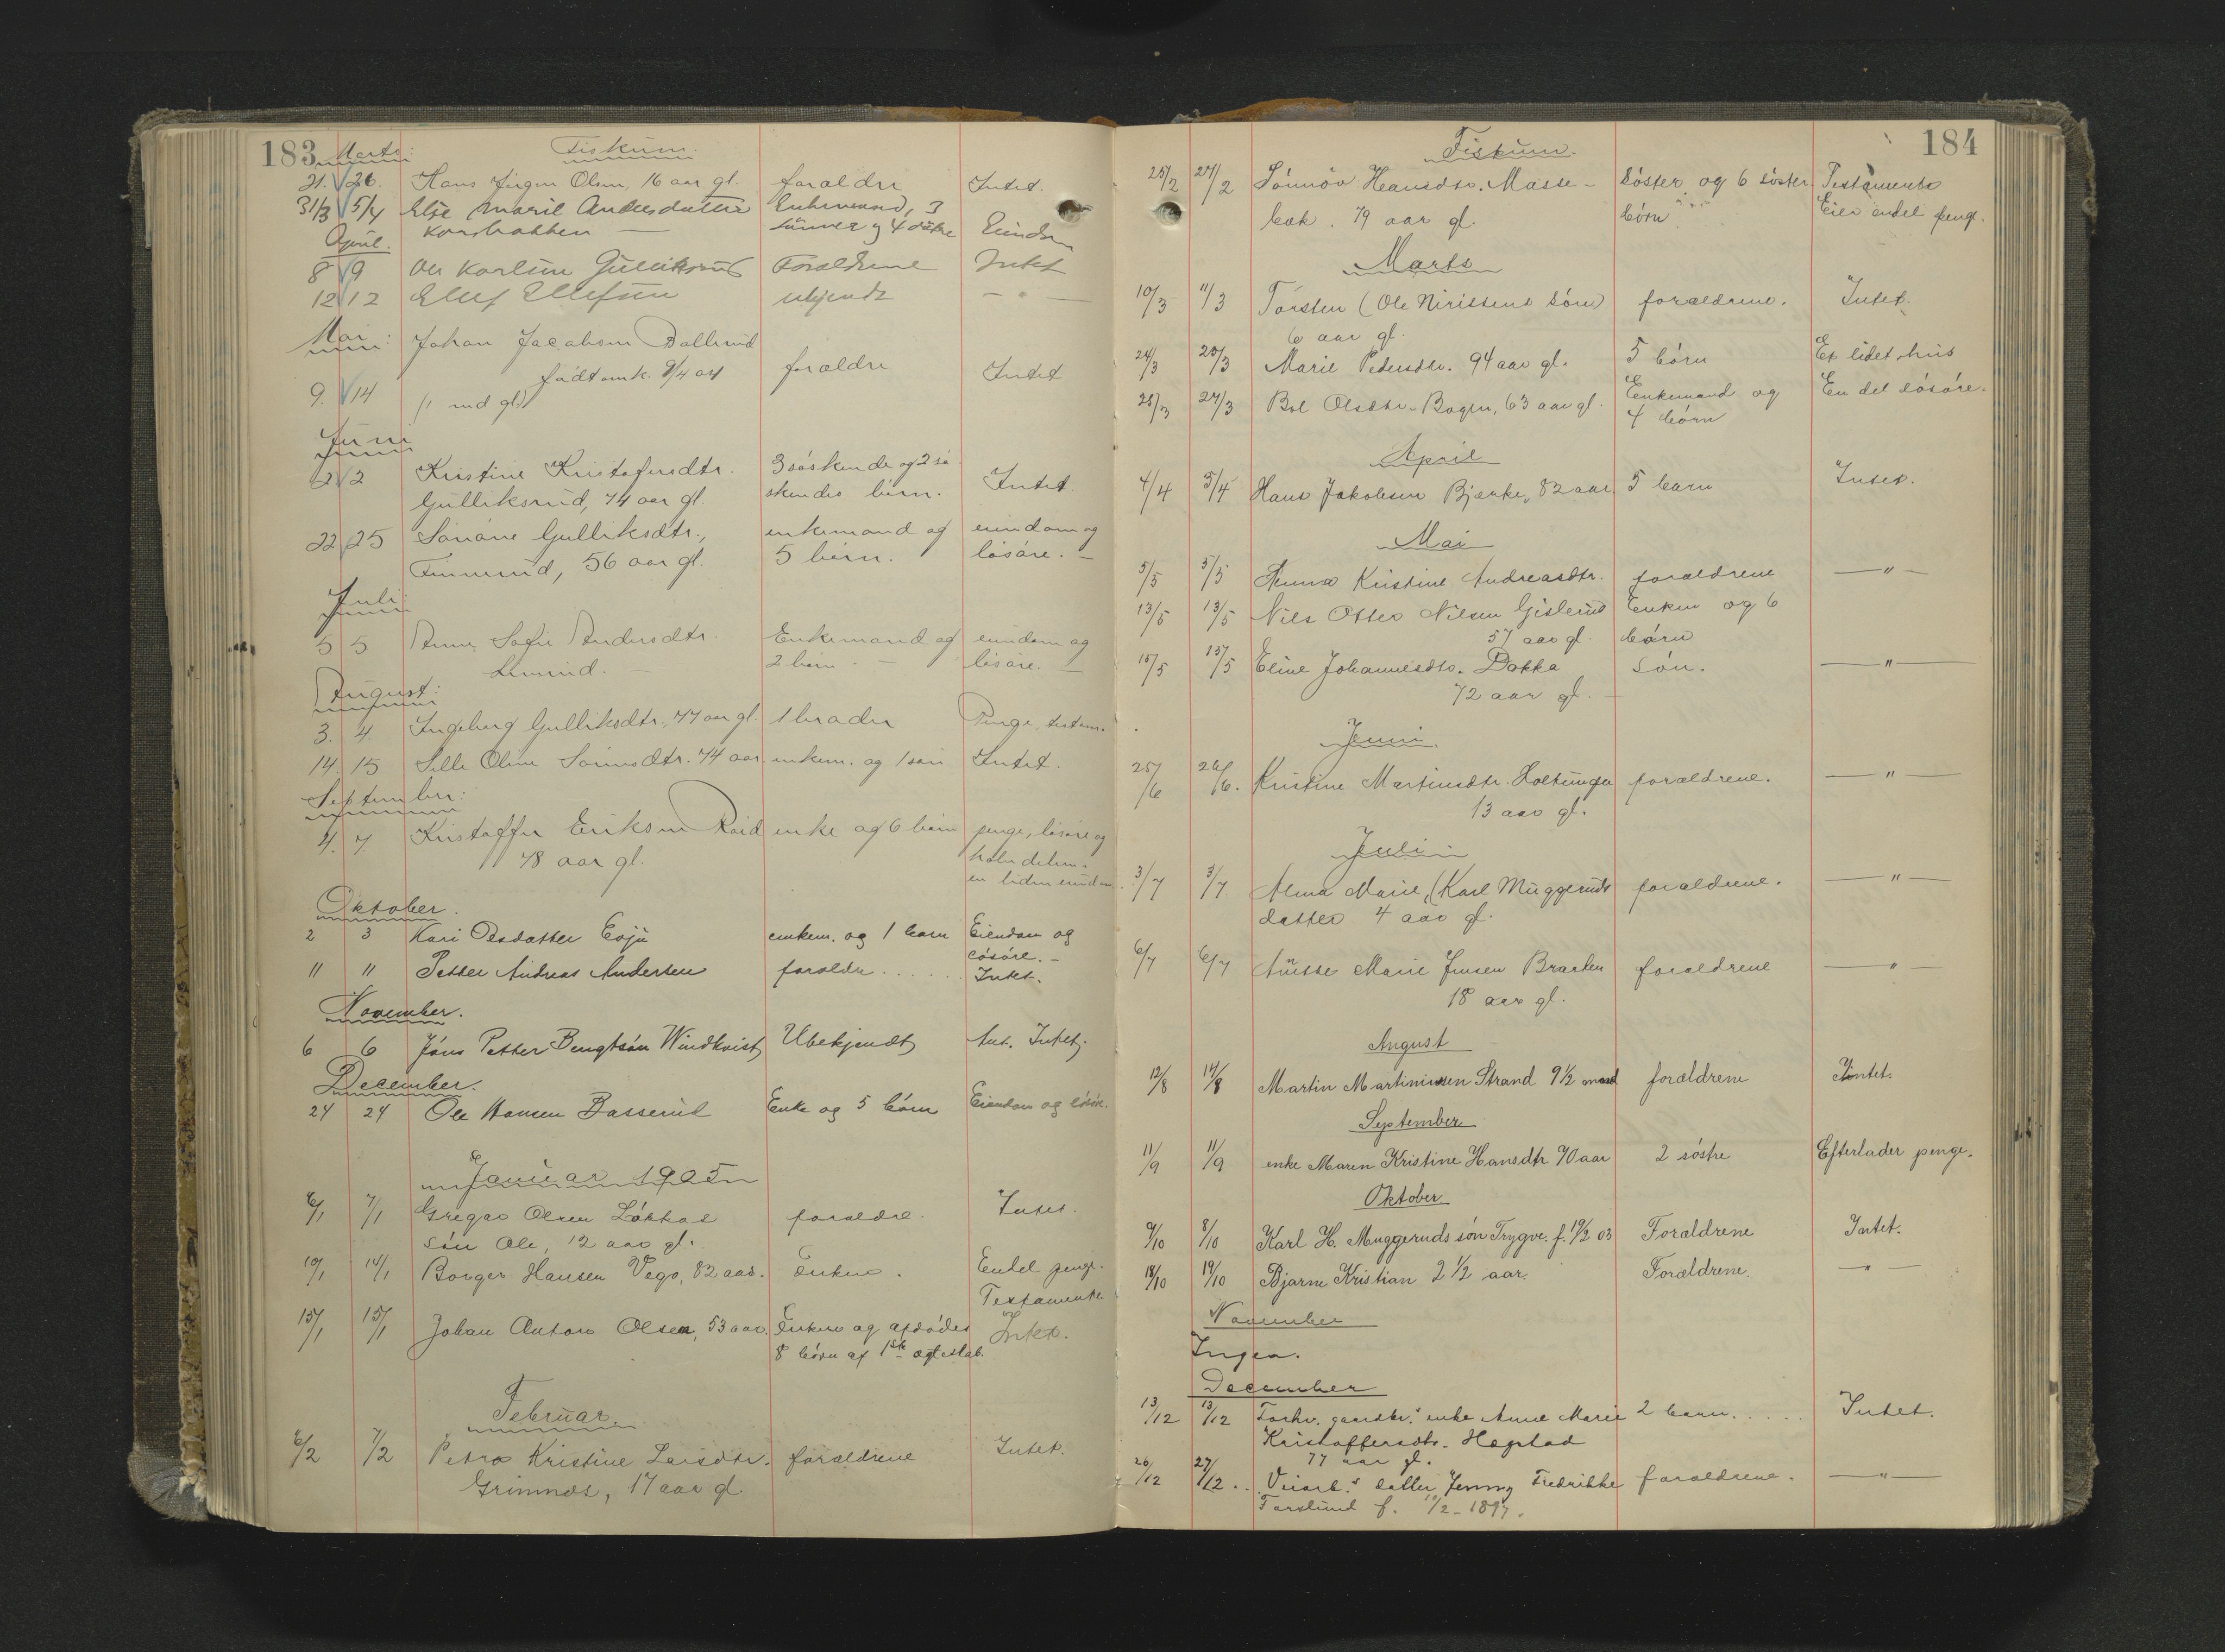 183 Marts: Fiskum.
21. 26. Hans Jørgen Olsen, 16 aar gl. forældre Intet.
31/3 5/4 Else Marie Andersdatter Enkemand, 3
Korsbakken — sønner og 4 døtre Eiendom
April.
8 9 Ole Karlsen Gulliksrud Forældrene Intet
12 12 Ellef Ellefsen ukjendt — " —
Mai: Johan Jacobsen Dallerud
født omk. 9/4 04 forældre Intet
9. 14 (1 md gl.)
Juni
2 2 Kristine Kristofersdtr. 3 søskende og 2 sø
Gulliksrud, 74 aar gl. skendes børn. Intet.
22 25 Gulliksdtr., enkemand og eiendom og
56 aar gl. 5 børn. løsøre. —
Juli:
5 5 Anne Sofie Andersdtr. Enkemand og eiendom og
2 børn. — løsøre. —
August:
3. 4. Ingeborg Gulliksdtr., 77 aar gl. 1 broder Penge, testam.
14. 15 Oline 74 aar enkem. og 1 søn Intet.
September:
4. 7 Kristoffer Eriksen enke og 6 børn penge, løsøre og
78 aar gl.
en liden eiendom.
Oktober.
2 3 Kari Evju enkem. og 1 barn Eiendom og
løsøre. —
11 11 Petter Andreas Andersen forældre . . . . . . Intet.
November.
6 6 Jøns Petter Bengtsøn Windkvist Ubekjendt Ant. Intet.
December.
24 24 Ole Hansen Basserud Enke og 5 børn Eiendom og løsøre.
Januar 1905
6/1 7/1 Gregar Olsen Løkkas forældre. Intet.
søn Ole, 12 aar gl.
10/1 14/1 Borger Hansen Vego, 82 aar. Enken. Endel penge.
Testamente
15/1 15/1 Johan Anton Olsen, 53 aar. Enken og afdødes Intet.
8 børn af 1ste ægteskab.
Februar.
6/2 7/2 Petra Kristine Larsdtr. forældrene Intet.
Grimnæs, 17 aar gl.
184
Fiskum.
25/2 27/2 Sønnøv Hansdtr. Masse- Søster og 6 søster Testamente
bæk. 79 aar gl. børn Eier endel penge.
Marts
10/3 11/3 Torsten (Ole Nirissens søn) forældrene. Intet.
6 aar gl.
24/3 25/3 Marie Pedersdtr. 94 aar gl. 5 børn Et lidet hus
25/3 27/3 Bol Olsdtr. Bogen, 63 aar gl. Enkemand og En del løsøre.
4 børn
April
4/4 5/4 Hans Jakobsen Bjerke, 82 aar 5 børn Intet.
Mai
5/5 5/5 Anna Kristine Andreasdtr. forældrene — " —
13/5 13/5 Nils Otter Nilsen Gislerud Enken og 6
57 aar gl. børn
15/5 15/5 Eline Johannesdtr. Dokka søn. — " —
72 aar gl.
Juni
25/6 26/6. Kristine Martinsdtr. Holtunga forældrene. — " —
13 aar gl.
Juli
3/7 3/7 Alma Marie, (Karl Muggeruds forældrene. — " —
datter 4 aar gl.
6/7 6/7 Marie Jensen Braaten forældrene — " —
18 aar gl.
August
12/8 14/8 Martin Martininssen Strand 9 1/2 maand forældrene Intet.
September
11/9 11/9 enke Maren Kristine Hansdtr 70 aar 2 søstre Efterlader penge.
Oktober
9/10 8/10 Karl H. Muggeruds søn Trygve. f. 19/2 03 Forældrene Intet.
18/10 19/10 Bjarne Kristian 2 1/2 aar. Forældrene. — " —
November
Ingen.
December
13/12 13/12 Forhv. gaardbr.s enke Anne Marie 2 børn. . . . . Intet.
Kristoffersdtr. Hegstad
77 aar gl.
26/12 27/12 . . datter Jenny Fredrikke forældrene. — " —
Forslund f. 11/2 - 1897.